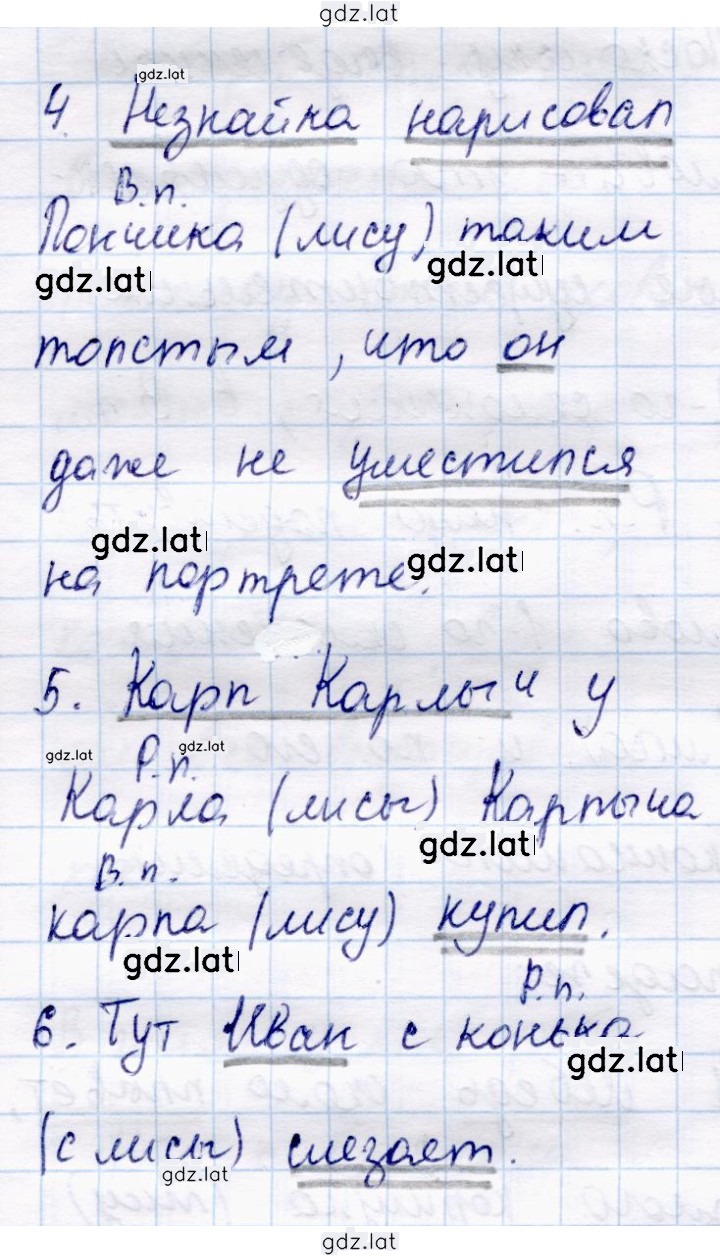 gdz.lat
gdz.lat
4. Незнайка нарисовал
В.п.
Пончика (лису) таким
gdz.lat gdz.lat
толстым, что он
даже не уместился
gdz.lat gdz.lat
на портрете.
5. Карп Карлыч у
gdz.lat Р.п. gdz.lat
Карла (лисы) Карпыча
gdz.lat
В.п.
карпа (лису) купил.
gdz.lat
Р.п.
6. Тут Иван с конька
gdz.lat
(с лисы) слезает.
gdz.lat
gdz.lat